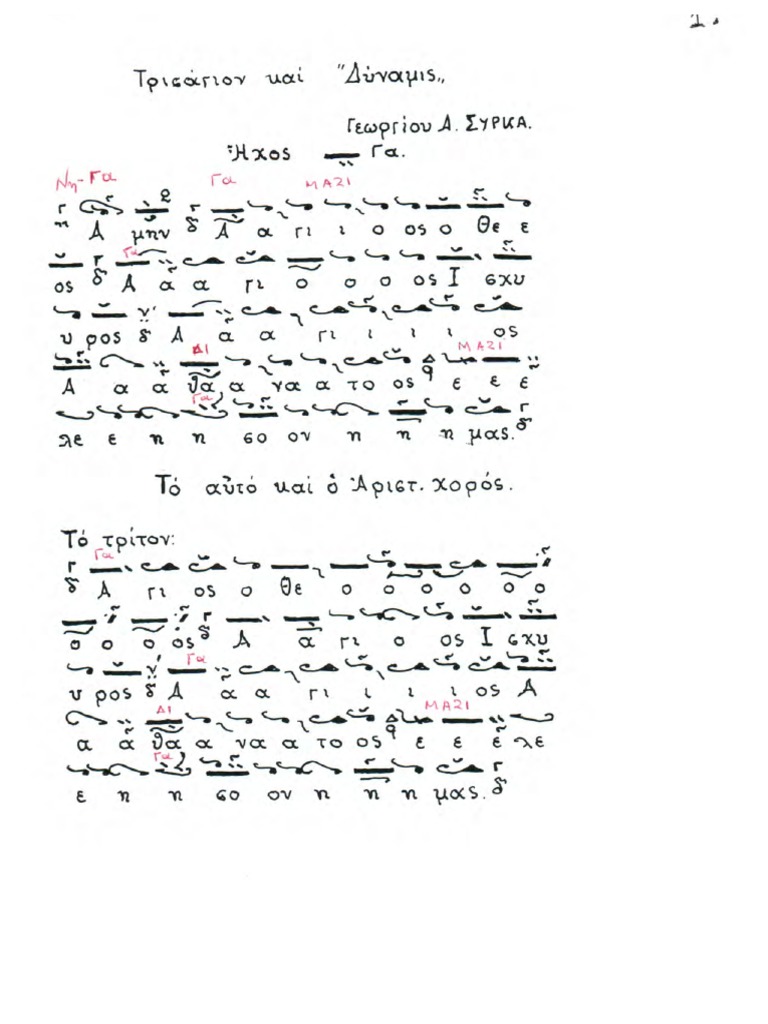 1.
Τρισάγιον καί "Δύναμις„
Γεωργίου Α. ΣΥΡΚΑ.
Ἦχος Γα.
Νη-Γα Γα ΜΑΖΙ
Α μην Α α γι ι ο ος ο Θε ε
Γα
ος Α α α γι ο ο ο ος Ι σχυ
υ ρος Α α α γι ι ι ι ος
Δι ΜΑΖΙ
Α α α θα α να α το ος ε ε ε
Γα
λε ε η η σο ον η η η μας.
Τό αὐτό καί ὁ Ἀριστ. χορός.
Τό τρίτον:
Γα
Α γι ος ο Θε ο ο ο ο ο ο
ο ο ο ος Α α γι ο ος Ι σχυ
Γα
υ ρος Α α α γι ι ι ι ος Α
Δι ΜΑΖΙ
α α θα α να α το ος ε ε ε λε
Γα
ε η η σο ον η η η μας.